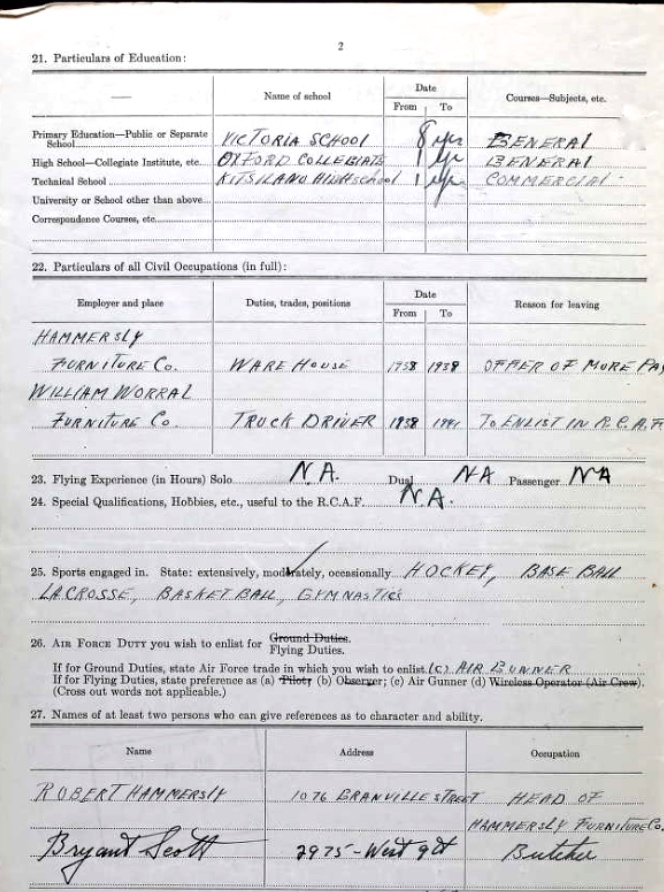 2
21. Particulars of Education:
Name of school
Date
From To
Courses—Subjects, etc.
Primary Education—Public or Separate
School VICTORIA SCHOOL 8 yrs GENERAL
High School—Collegiate Institute, etc. OXFORD COLLEGIATE 1 yr GENERAL
Technical School KITSILANO HIGH school 1 yr COMMERCIAL
University or School other than above
Correspondence Courses, etc.
22. Particulars of all Civil Occupations (in full):
Employer and place
Duties, trades, positions
Date
From To
Reason for leaving
HAMMERSLY
FURNITURE Co. WARE HOUSE 1938 OFFER OF MORE PAY
WILLIAM WORRAL
FURNITURE Co. TRUCK DRIVER 1938 1941 To ENLIST IN R.C.A.F
23. Flying Experience (in Hours) Solo N.A. Dual NA Passenger NA
24. Special Qualifications, Hobbies, etc., useful to the R.C.A.F. N.A.
25. Sports engaged in. State: extensively, moderately, occasionally HOCKEY, BASE BALL
LACROSSE, BASKET BALL, GYMNASTICS
26. AIR FORCE DUTY you wish to enlist for Ground Duties.
Flying Duties.
If for Ground Duties, state Air Force trade in which you wish to enlist (c) AIR GUNNER
If for Flying Duties, state preference as (a) Pilot; (b) Observer; (c) Air Gunner (d) Wireless Operator (Air Crew).
(Cross out words not applicable.)
27. Names of at least two persons who can give references as to character and ability.
Name Address Occupation
ROBERT HAMMERSLY 1076 GRANVILLE STREET HEAD OF
HAMMERSLY FURNITURE Co.
Bryant Scott 2975 - West 9th Butcher